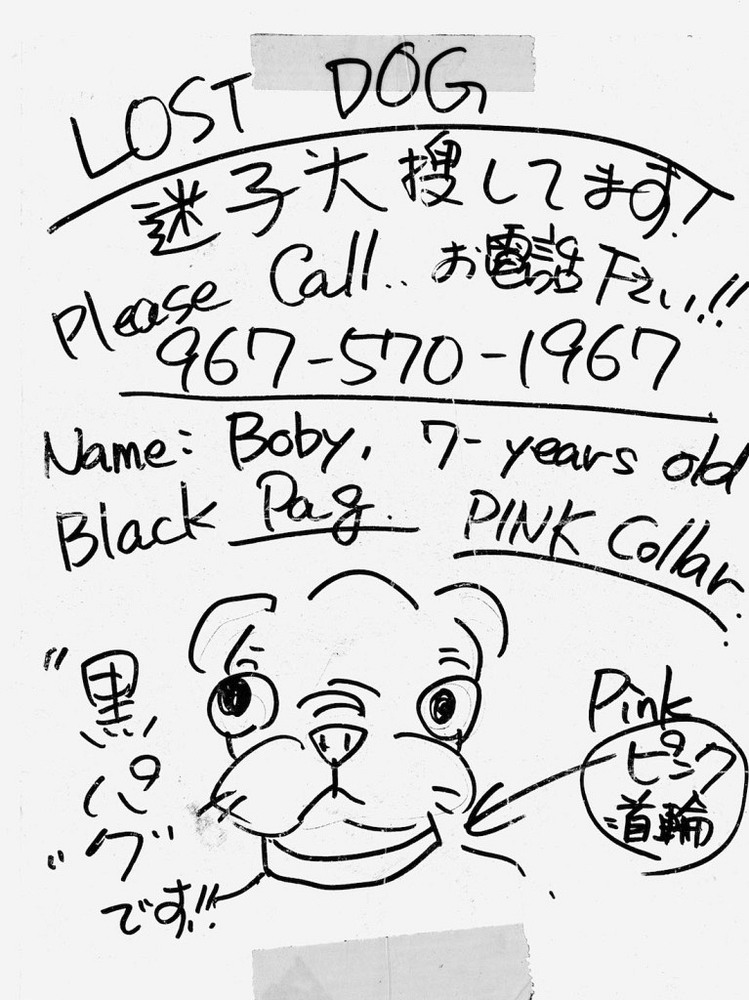 LOST DOG
迷子犬 捜してます!
Please Call.. お電話下さい!!
967-570-1967
Name: Boby, 7-years old
Black Pag. PINK Collar.
"黒
パ
グ"
です!!
Pink
ピンク
首輪